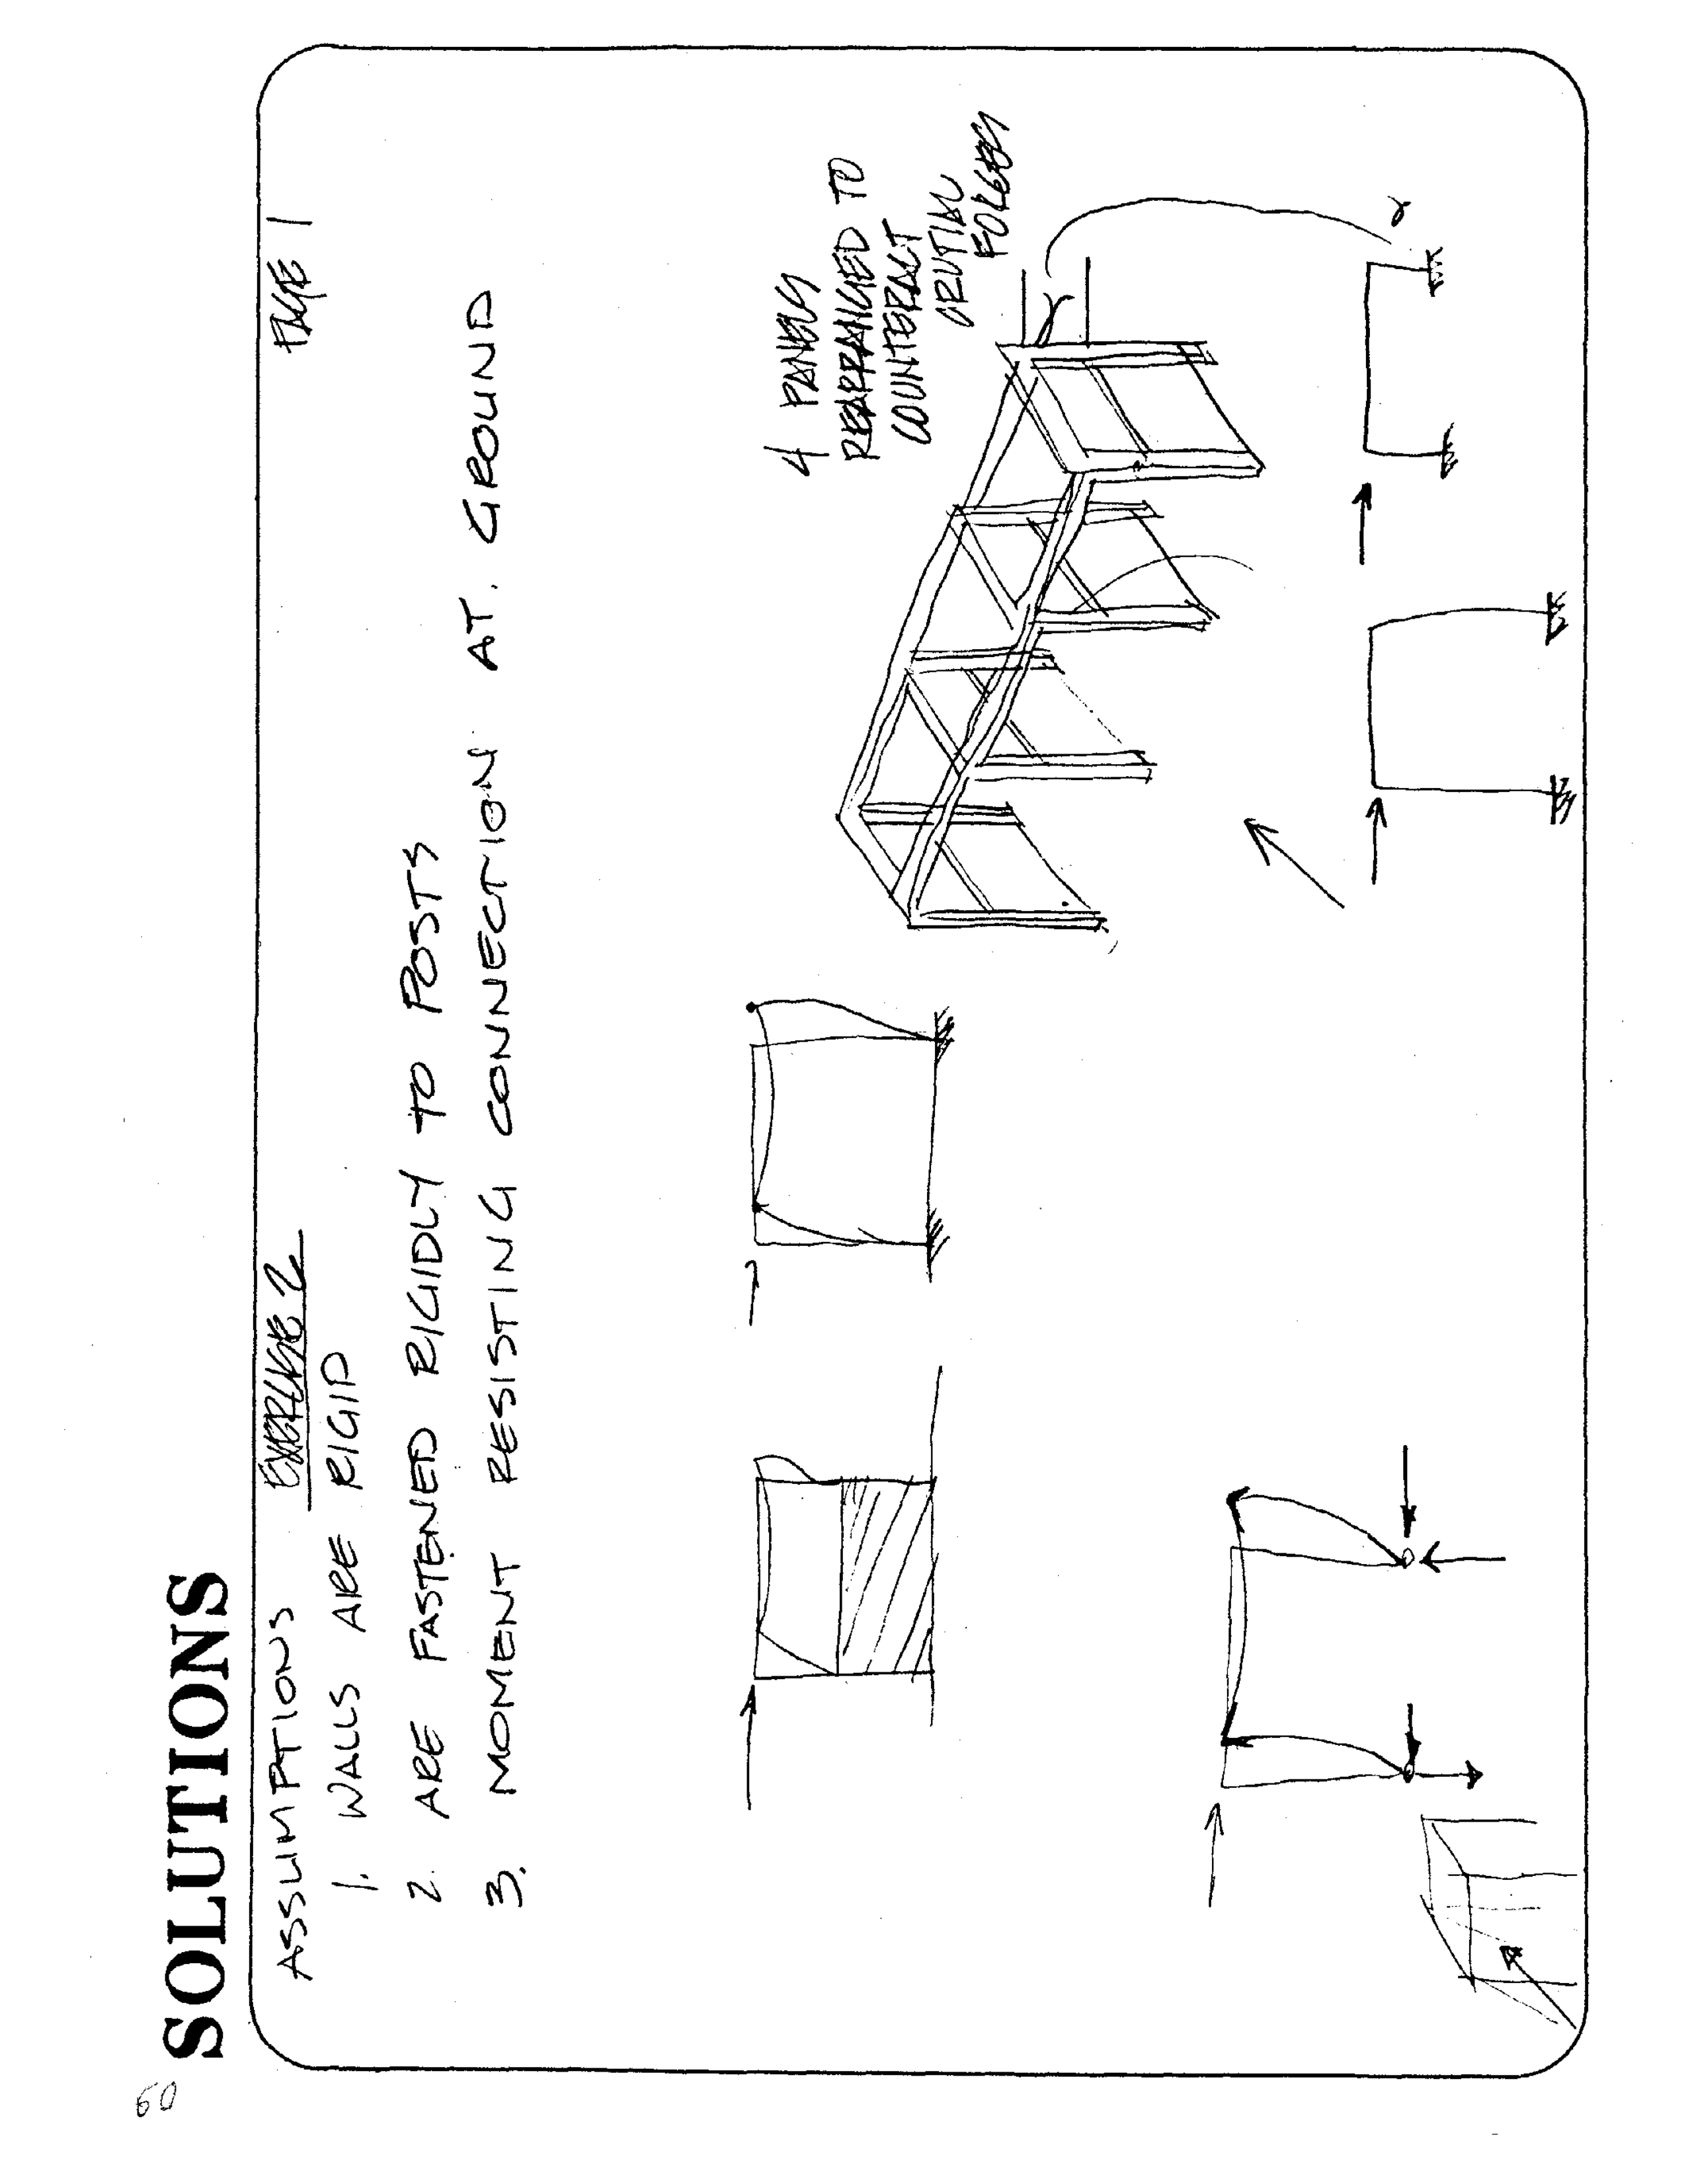 60
SOLUTIONS
ASSUMPTIONS EXERCISE 2 PAGE 1
1. WALLS ARE RIGID
2. ARE FASTENED RIGIDLY TO POSTS
3. MOMENT RESISTING CONNECTION AT. GROUND
4 PANELS
REARRANGED TO
COUNTERACT
CRUTIAL
FORCES